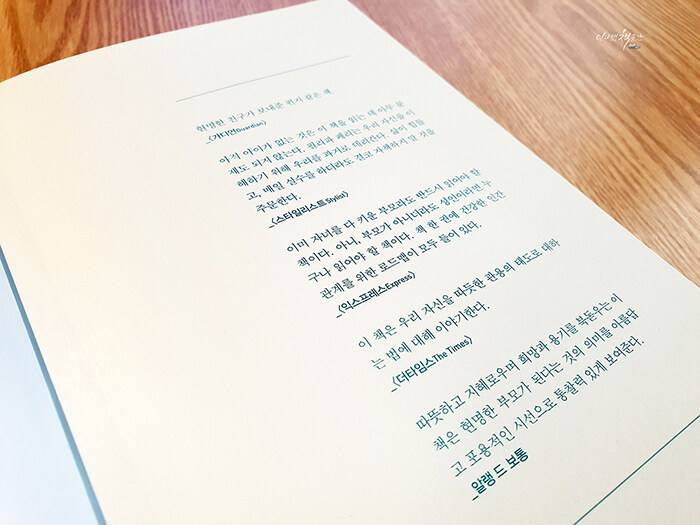 현명한 친구가 보내준 편지 같은 책.
_〈가디언Guardian〉
아직 아이가 없는 것은 이 책을 읽는 데 아무 문
제도 되지 않는다. 필리파 페리는 우리 자신을 이
해하기 위해 우리를 과거로 데려간다. 삶이 힘들
고, 매일 실수를 하더라도 결코 자책하지 말 것을
주문한다.
_〈스타일리스트Stylist〉
이미 자녀를 다 키운 부모라도 반드시 읽어야 할
책이다. 아니, 부모가 아니더라도 성인이라면 누
구나 읽어야 할 책이다. 책 한 권에 건강한 인간
관계를 위한 로드맵이 모두 들어 있다.
_〈익스프레스Express〉
이 책은 우리 자신을 따뜻한 관용의 태도로 대하
는 법에 대해 이야기한다.
_〈더타임스The Times〉
따뜻하고 지혜로우며 희망과 용기를 북돋우는 이
책은 현명한 부모가 된다는 것의 의미를 아름답
고 포용적인 시선으로 통찰력 있게 보여준다.
_알랭 드 보통